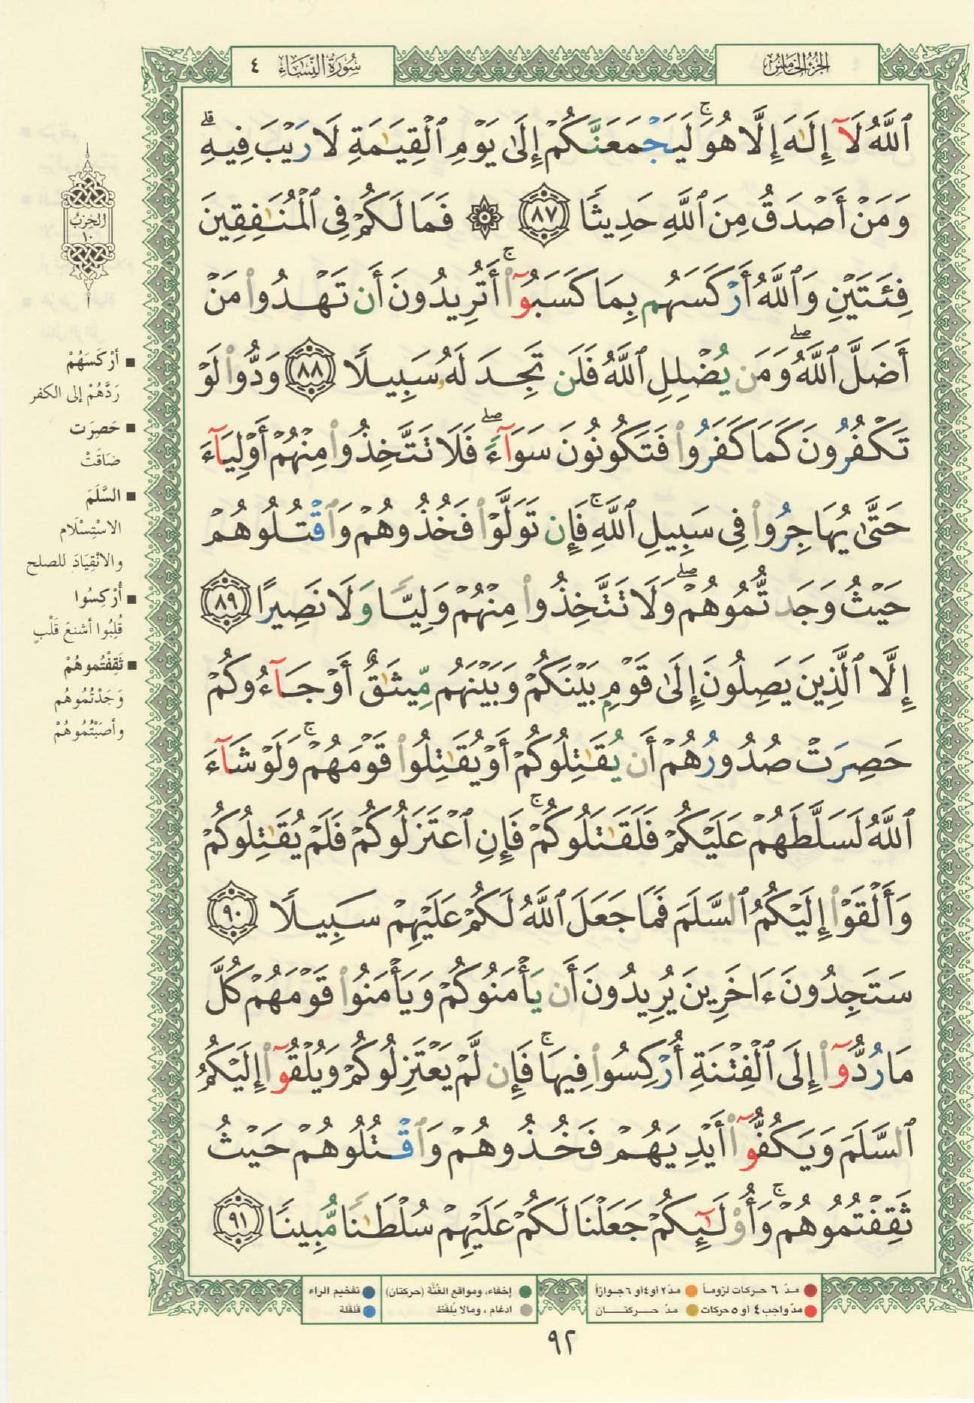 الجزء الخامس
سورة النساء ٤
ٱللَّهُ لَآ إِلَـٰهَ إِلَّا هُوَ ۚ لَيَجْمَعَنَّكُمْ إِلَىٰ يَوْمِ ٱلْقِيَـٰمَةِ لَا رَيْبَ فِيهِ ۗ
وَمَنْ أَصْدَقُ مِنَ ٱللَّهِ حَدِيثًا ٨٧ ۞ فَمَا لَكُمْ فِى ٱلْمُنَـٰفِقِينَ
فِئَتَيْنِ وَٱللَّهُ أَرْكَسَهُم بِمَا كَسَبُوٓا۟ ۚ أَتُرِيدُونَ أَن تَهْدُوا۟ مَنْ
أَضَلَّ ٱللَّهُ ۖ وَمَن يُضْلِلِ ٱللَّهُ فَلَن تَجِدَ لَهُۥ سَبِيلًا ٨٨ وَدُّوا۟ لَوْ
تَكْفُرُونَ كَمَا كَفَرُوا۟ فَتَكُونُونَ سَوَآءً ۖ فَلَا تَتَّخِذُوا۟ مِنْهُمْ أَوْلِيَآءَ
حَتَّىٰ يُهَاجِرُوا۟ فِى سَبِيلِ ٱللَّهِ ۚ فَإِن تَوَلَّوْا۟ فَخُذُوهُمْ وَٱقْتُلُوهُمْ
حَيْثُ وَجَدتُّمُوهُمْ ۖ وَلَا تَتَّخِذُوا۟ مِنْهُمْ وَلِيًّا وَلَا نَصِيرًا ٨٩
إِلَّا ٱلَّذِينَ يَصِلُونَ إِلَىٰ قَوْمٍۭ بَيْنَكُمْ وَبَيْنَهُم مِّيثَـٰقٌ أَوْ جَآءُوكُمْ
حَصِرَتْ صُدُورُهُمْ أَن يُقَـٰتِلُوكُمْ أَوْ يُقَـٰتِلُوا۟ قَوْمَهُمْ ۚ وَلَوْ شَآءَ
ٱللَّهُ لَسَلَّطَهُمْ عَلَيْكُمْ فَلَقَـٰتَلُوكُمْ ۚ فَإِنِ ٱعْتَزَلُوكُمْ فَلَمْ يُقَـٰتِلُوكُمْ
وَأَلْقَوْا۟ إِلَيْكُمُ ٱلسَّلَمَ فَمَا جَعَلَ ٱللَّهُ لَكُمْ عَلَيْهِمْ سَبِيلًا ٩٠
سَتَجِدُونَ ءَاخَرِينَ يُرِيدُونَ أَن يَأْمَنُوكُمْ وَيَأْمَنُوا۟ قَوْمَهُمْ كُلَّ
مَا رُدُّوٓا۟ إِلَى ٱلْفِتْنَةِ أُرْكِسُوا۟ فِيهَا ۚ فَإِن لَّمْ يَعْتَزِلُوكُمْ وَيُلْقُوٓا۟ إِلَيْكُمُ
ٱلسَّلَمَ وَيَكُفُّوٓا۟ أَيْدِيَهُمْ فَخُذُوهُمْ وَٱقْتُلُوهُمْ حَيْثُ
ثَقِفْتُمُوهُمْ ۚ وَأُو۟لَـٰٓئِكُمْ جَعَلْنَا لَكُمْ عَلَيْهِمْ سُلْطَـٰنًا مُّبِينًا ٩١
الحزب
١٠
■ أَرْكَسَهُمْ
رَدَّهُمْ إلى الكفر
■ حَصِرَت
ضَاقَتْ
■ السَّلَمَ
الاسْتِسْلام
والانْقِيَادَ للصلح
■ أُرْكِسُوا
قُلِبُوا أشنعَ قَلْبٍ
■ ثَقِفْتُموهُمْ
وَجَدْتُمُوهُم
وأصَبْتُموهُمْ
مدّ ٦ حركات لزوماً مدّ ٢ أو ٤ أو ٦ جوازاً
مدّ واجب ٤ أو ٥ حركات مدّ حركتان
إخفاء، ومواقع الغُنَّة (حركتان) تفخيم الراء
ادغام، ومالا يُلفَظ قلقلة
٩٢